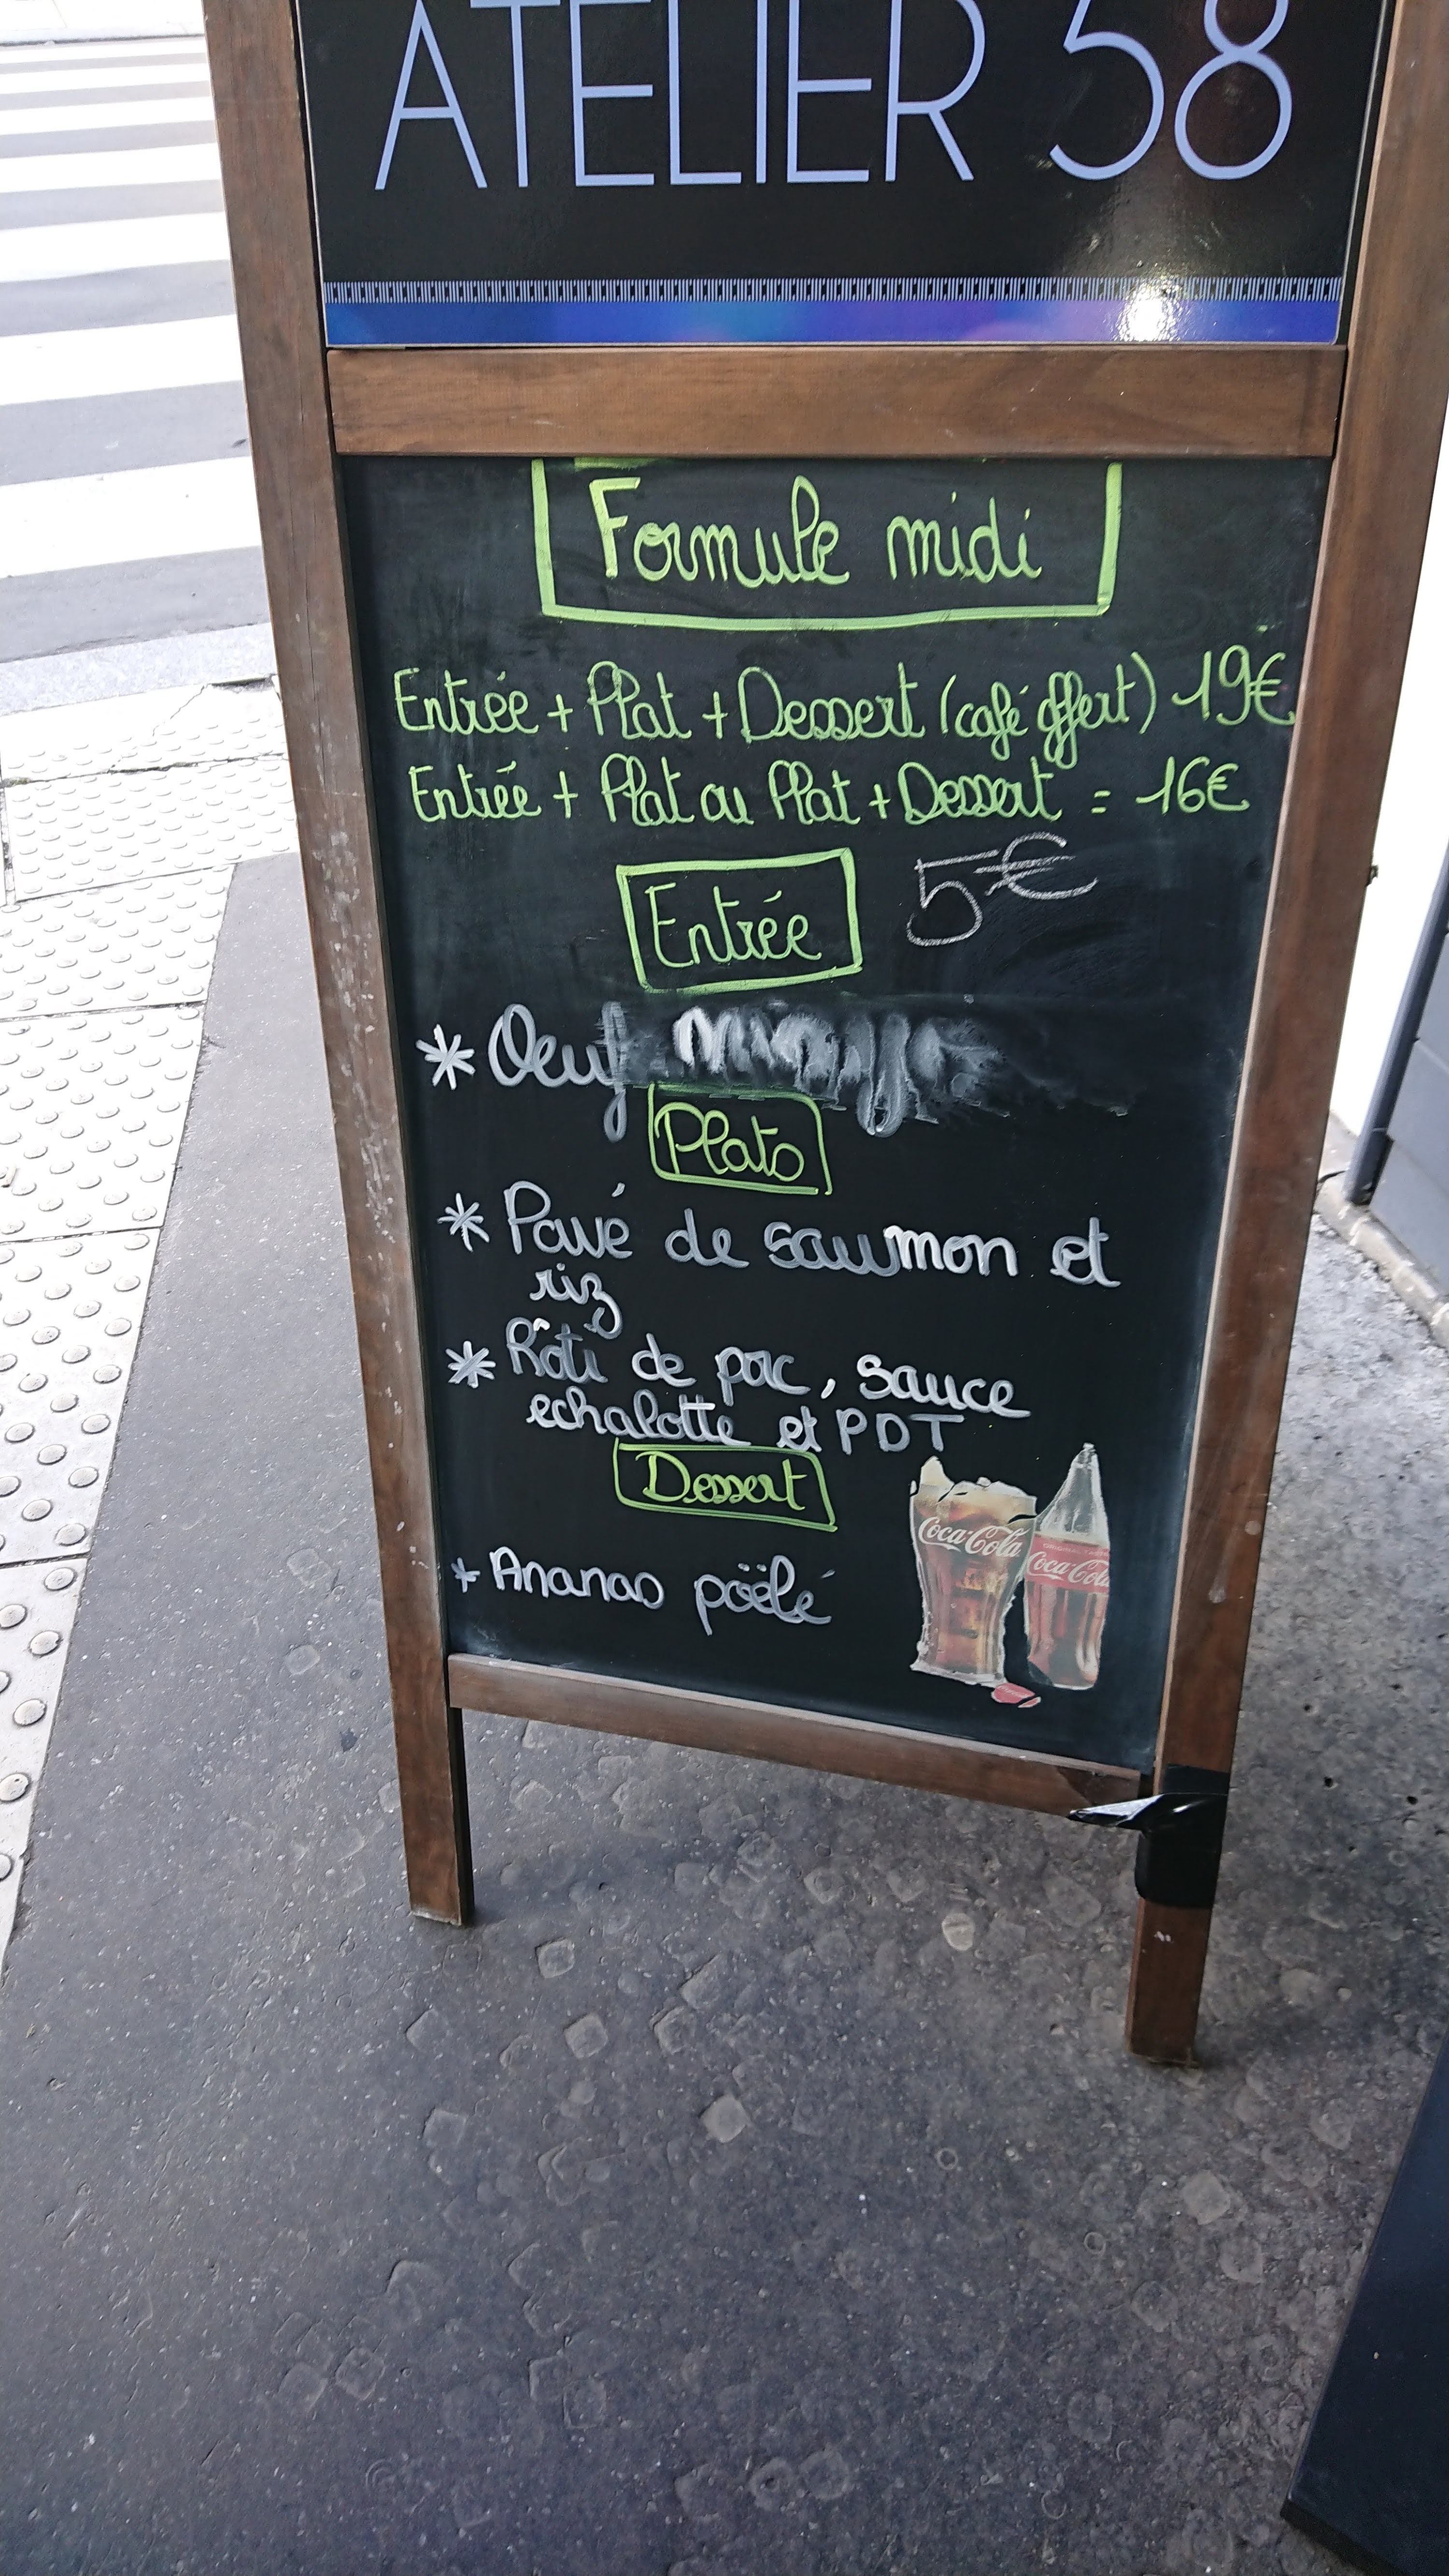 ATELIER 58
Formule midi
Entrée + Plat + Dessert (café offert) 19€
Entrée + Plat ou Plat + Dessert = 16€
Entrée 5€
* Oeuf
Plats
* Pavé de saumon et
riz
* Rôti de porc, sauce
echalotte et PDT
Dessert
* Ananas pöëlé
Coca-Cola
Coca-Cola